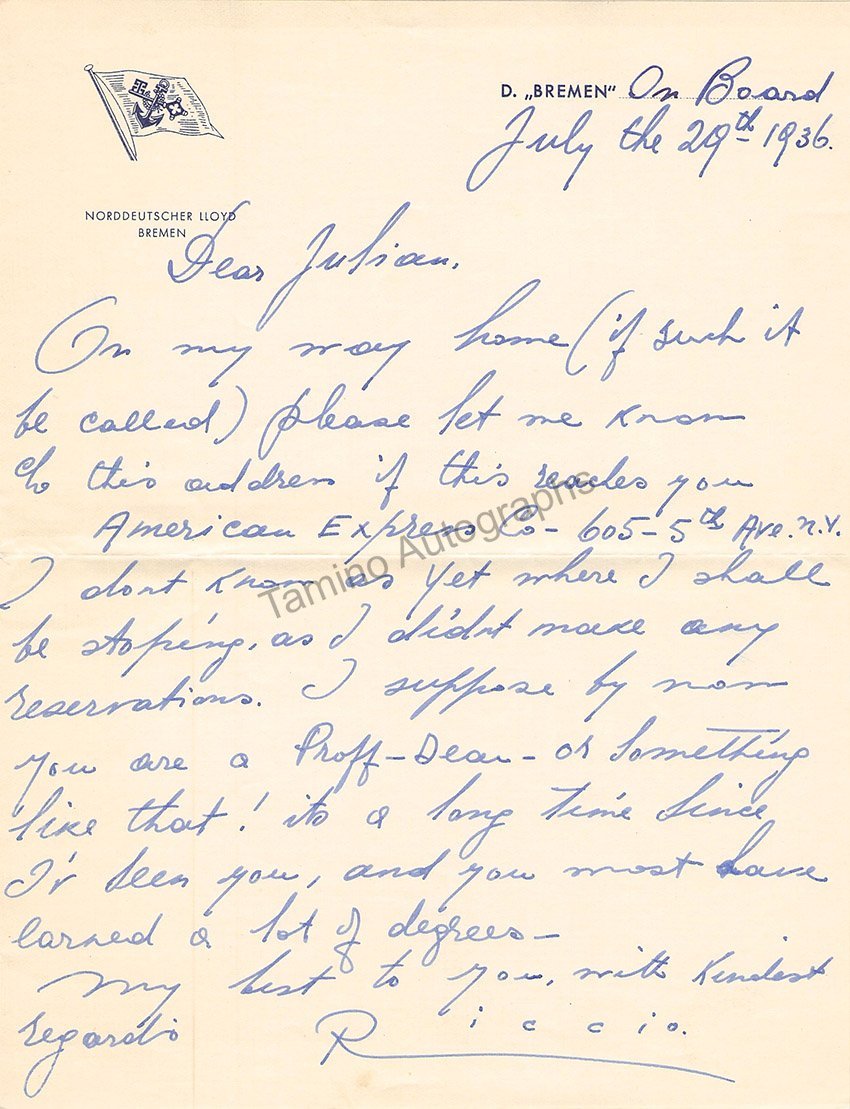 D. „BREMEN" On Board
July the 29th 1936.
NORDDEUTSCHER LLOYD
BREMEN
Dear Julian,
On my way home (if such it
be called) please let me know
c/o this address if this reaches you
American Express Co - 605 - 5th Ave. N.Y.
I dont know as yet where I shall
be stoping, as I didnt make any
reservations. I suppose by now
you are a Proff - Dean - or something
like that! its a long time since
I'v seen you, and you most have
earned a lot of degrees -
My best to you, with kindest
regards Riccio.
Tamino Autographs